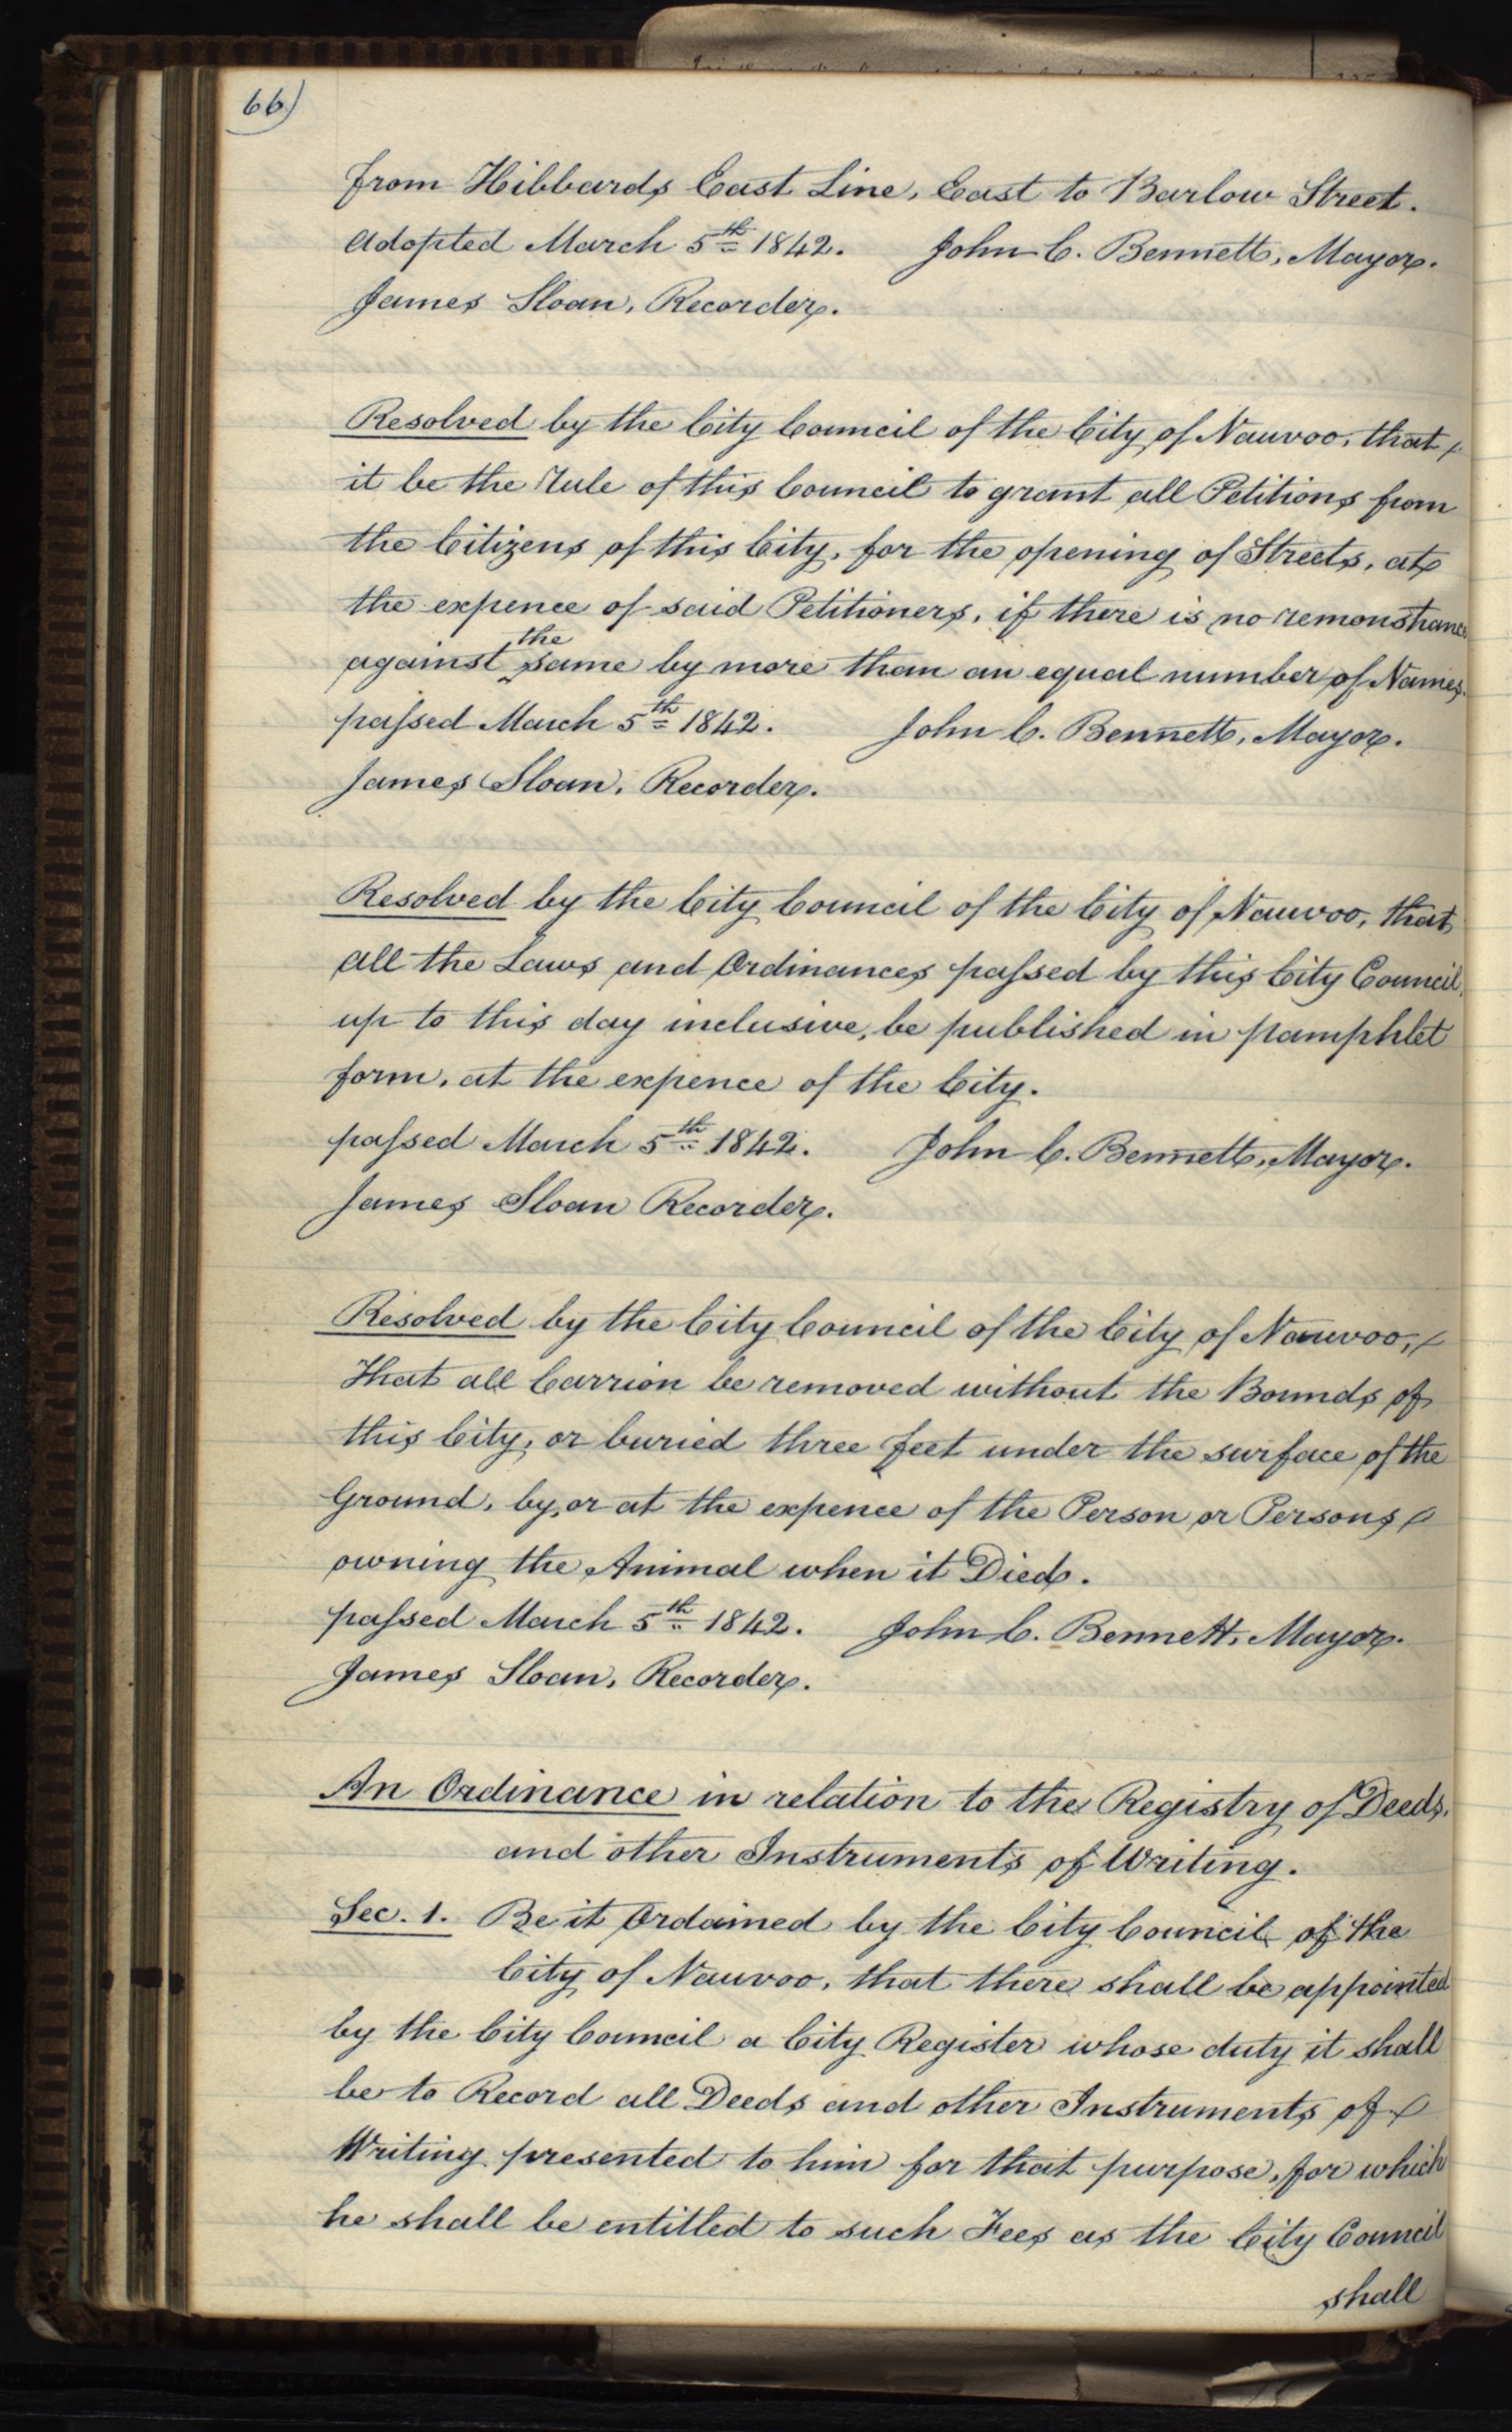 66)
from Hibbards East Line, East to Barlow Street.
Adopted March 5th 1842. John C. Bennett, Mayor.
James Sloan, Recorder.
Resolved by the City Council of the City of Nauvoo, that
it be the rule of this Council to grant all Petitions from
the Citizens of this City, for the opening of Streets, at
the expence of said Petitioners, if there is no remonstrance
the
against same by more than an equal number of Names.
passed March 5th 1842. John C. Bennett, Mayor.
James Sloan, Recorder.
Resolved by the City Council of the City of Nauvoo, that
all the Laws and Ordinances passed by this City Council,
up to this day inclusive, be published in pamphlet
form, at the expence of the City.
passed March 5th 1842. John C. Bennett, Mayor.
James Sloan Recorder.
Resolved by the City Council of the City of Nauvoo,
That all Carrion be removed without the Bounds of
this City, or buried three feet under the surface of the
Ground, by, or at the expence of the Person or Persons
owning the Animal when it Died.
passed March 5th 1842. John C. Bennett, Mayor.
James Sloan, Recorder.
An Ordinance in relation to the Registry of Deeds,
and other Instruments of Writing.
Sec. 1. Be it Ordained by the City Council of the
City of Nauvoo, that there shall be appointed
by the City Council a City Register whose duty it shall
be to Record all Deeds and other Instruments of
Writing presented to him for that purpose, for which
he shall be entitled to such Fees as the City Council
shall